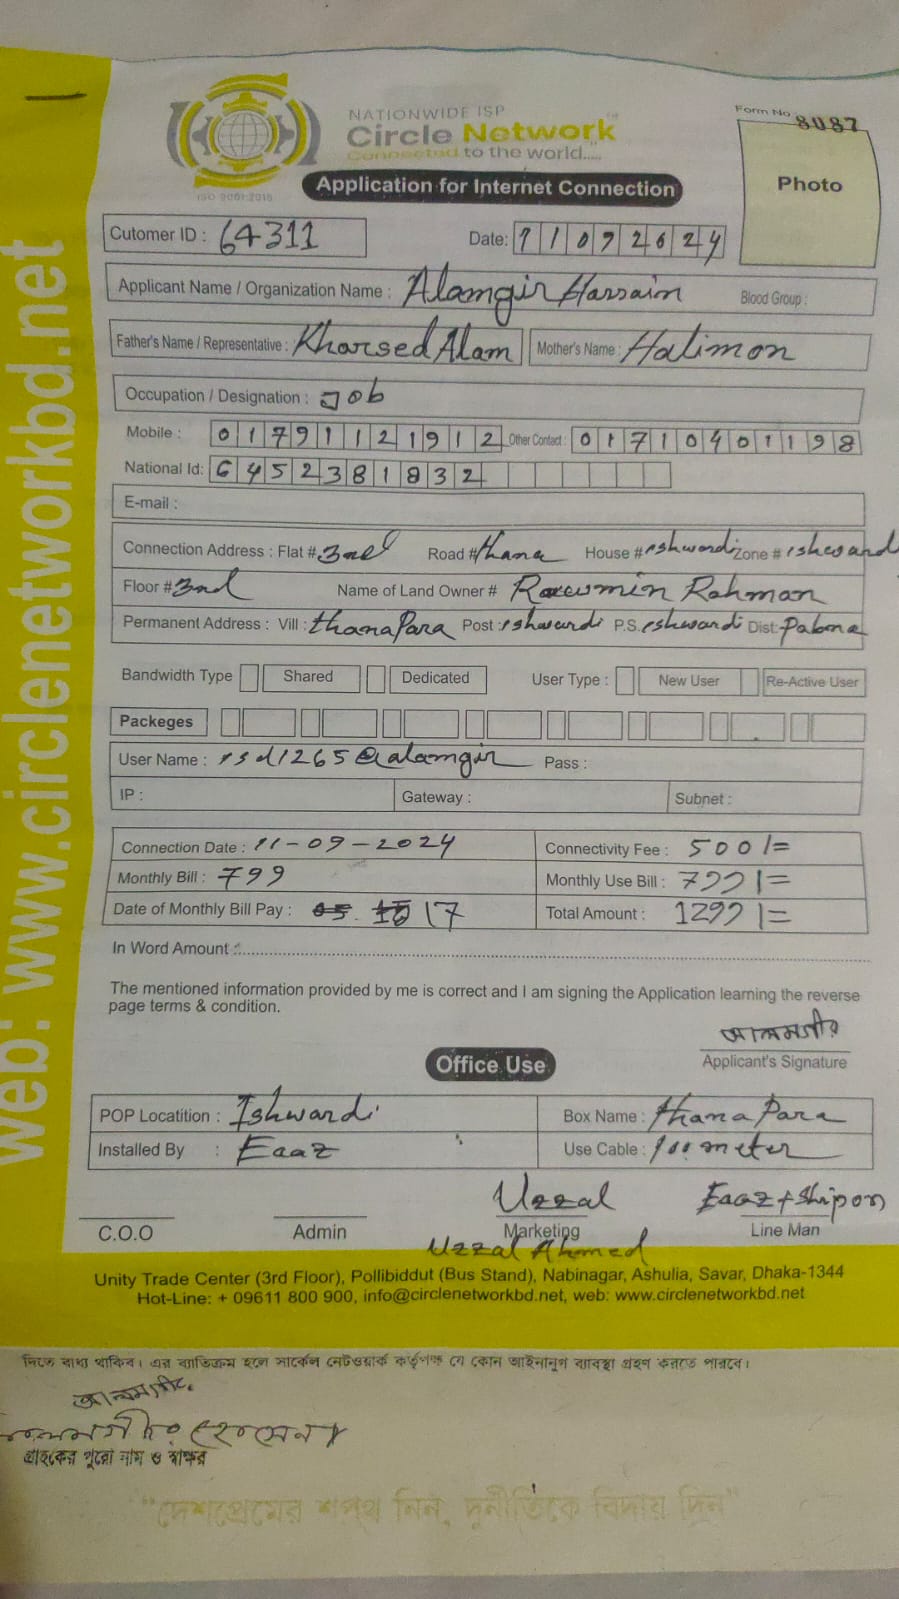 NATIONWIDE ISP
Circle Network
Connected to the world.....
ISO 9001:2015
Form No 8087
Photo
Application for Internet Connection
Cutomer ID : 64311
Date: 11092024
Applicant Name / Organization Name : Alamgir Hossain
Blood Group :
Father's Name / Representative : Khorsed Alam
Mother's Name : Halimon
Occupation / Designation : Job
Mobile : 01791121912
Other Contact : 01710401198
National Id: 6452381832
E-mail :
Connection Address : Flat # 3nd Road # thana House # eshwardi Zone # ishwardi
Floor # 3nd Name of Land Owner # Rahman
Permanent Address : Vill : thanaPara Post : eshwardi P.S. eshwardi Dist: Pabna
Bandwidth Type Shared Dedicated User Type : New User Re-Active User
Packeges
User Name : rsd1265@alamgir Pass :
IP : Gateway : Subnet :
Connection Date : 11-09-2024
Connectivity Fee : 500/=
Monthly Bill : 799
Monthly Use Bill : 799/=
Date of Monthly Bill Pay : 17
Total Amount : 1299/=
In Word Amount :
The mentioned information provided by me is correct and I am signing the Application learning the reverse
page terms & condition.
আলমগীর
Applicant's Signature
Office Use
POP Locatition : Ishwardi
Box Name : thana Para
Installed By : Eaaz
Use Cable : 100 meter
Uzzal
Eaaz + Shipon
C.O.O Admin Marketing Line Man
Uzzal Ahmed
Unity Trade Center (3rd Floor), Pollibiddut (Bus Stand), Nabinagar, Ashulia, Savar, Dhaka-1344
Hot-Line: + 09611 800 900, info@circlenetworkbd.net, web: www.circlenetworkbd.net
web: www.circlenetworkbd.net
দিতে বাধ্য থাকিব। এর ব্যতিক্রম হলে সার্কেল নেটওয়ার্ক কর্তৃপক্ষ যে কোন আইনানুগ ব্যবস্থা গ্রহণ করতে পারবে।
আলমগীর
আলমগীর হোসেন
গ্রাহকের পুরো নাম ও স্বাক্ষর
"দেশপ্রেমের শপথ নিন, দুর্নীতিকে বিদায় দিন"